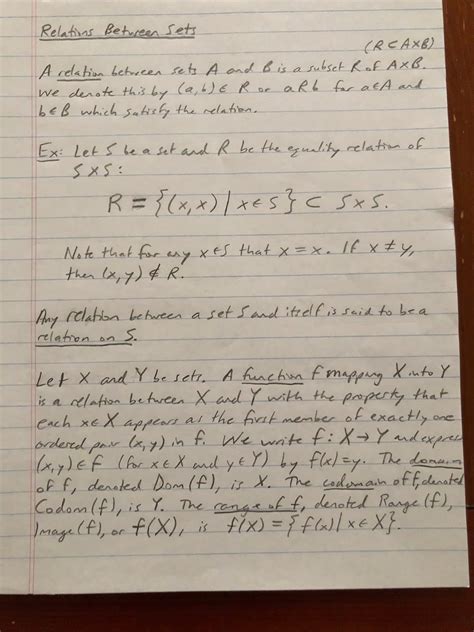 Relations Between Sets
(R⊂A×B)
A relation between sets A and B is a subset R of A×B.
We denote this by (a,b)∈ R or aRb for a∈A and
b∈B which satisfy the relation.
Ex: Let S be a set and R be the equality relation of
S×S:
R = {(x,x) | x∈S} ⊂ S×S.
Note that for any x∈S that x=x. If x≠y,
then (x,y)∉ R.
Any relation between a set S and itself is said to be a
relation on S.
Let X and Y be sets. A function f mapping X into Y
is a relation between X and Y with the property that
each x∈X appears as the first member of exactly one
ordered pair (x,y) in f. We write f: X→Y and express
(x,y)∈f (for x∈X and y∈Y) by f(x)=y. The domain
of f, denoted Dom(f), is X. The codomain of f, denoted
Codom(f), is Y. The range of f, denoted Range(f),
Image(f), or f(X), is f(X) = {f(x) | x∈X}.